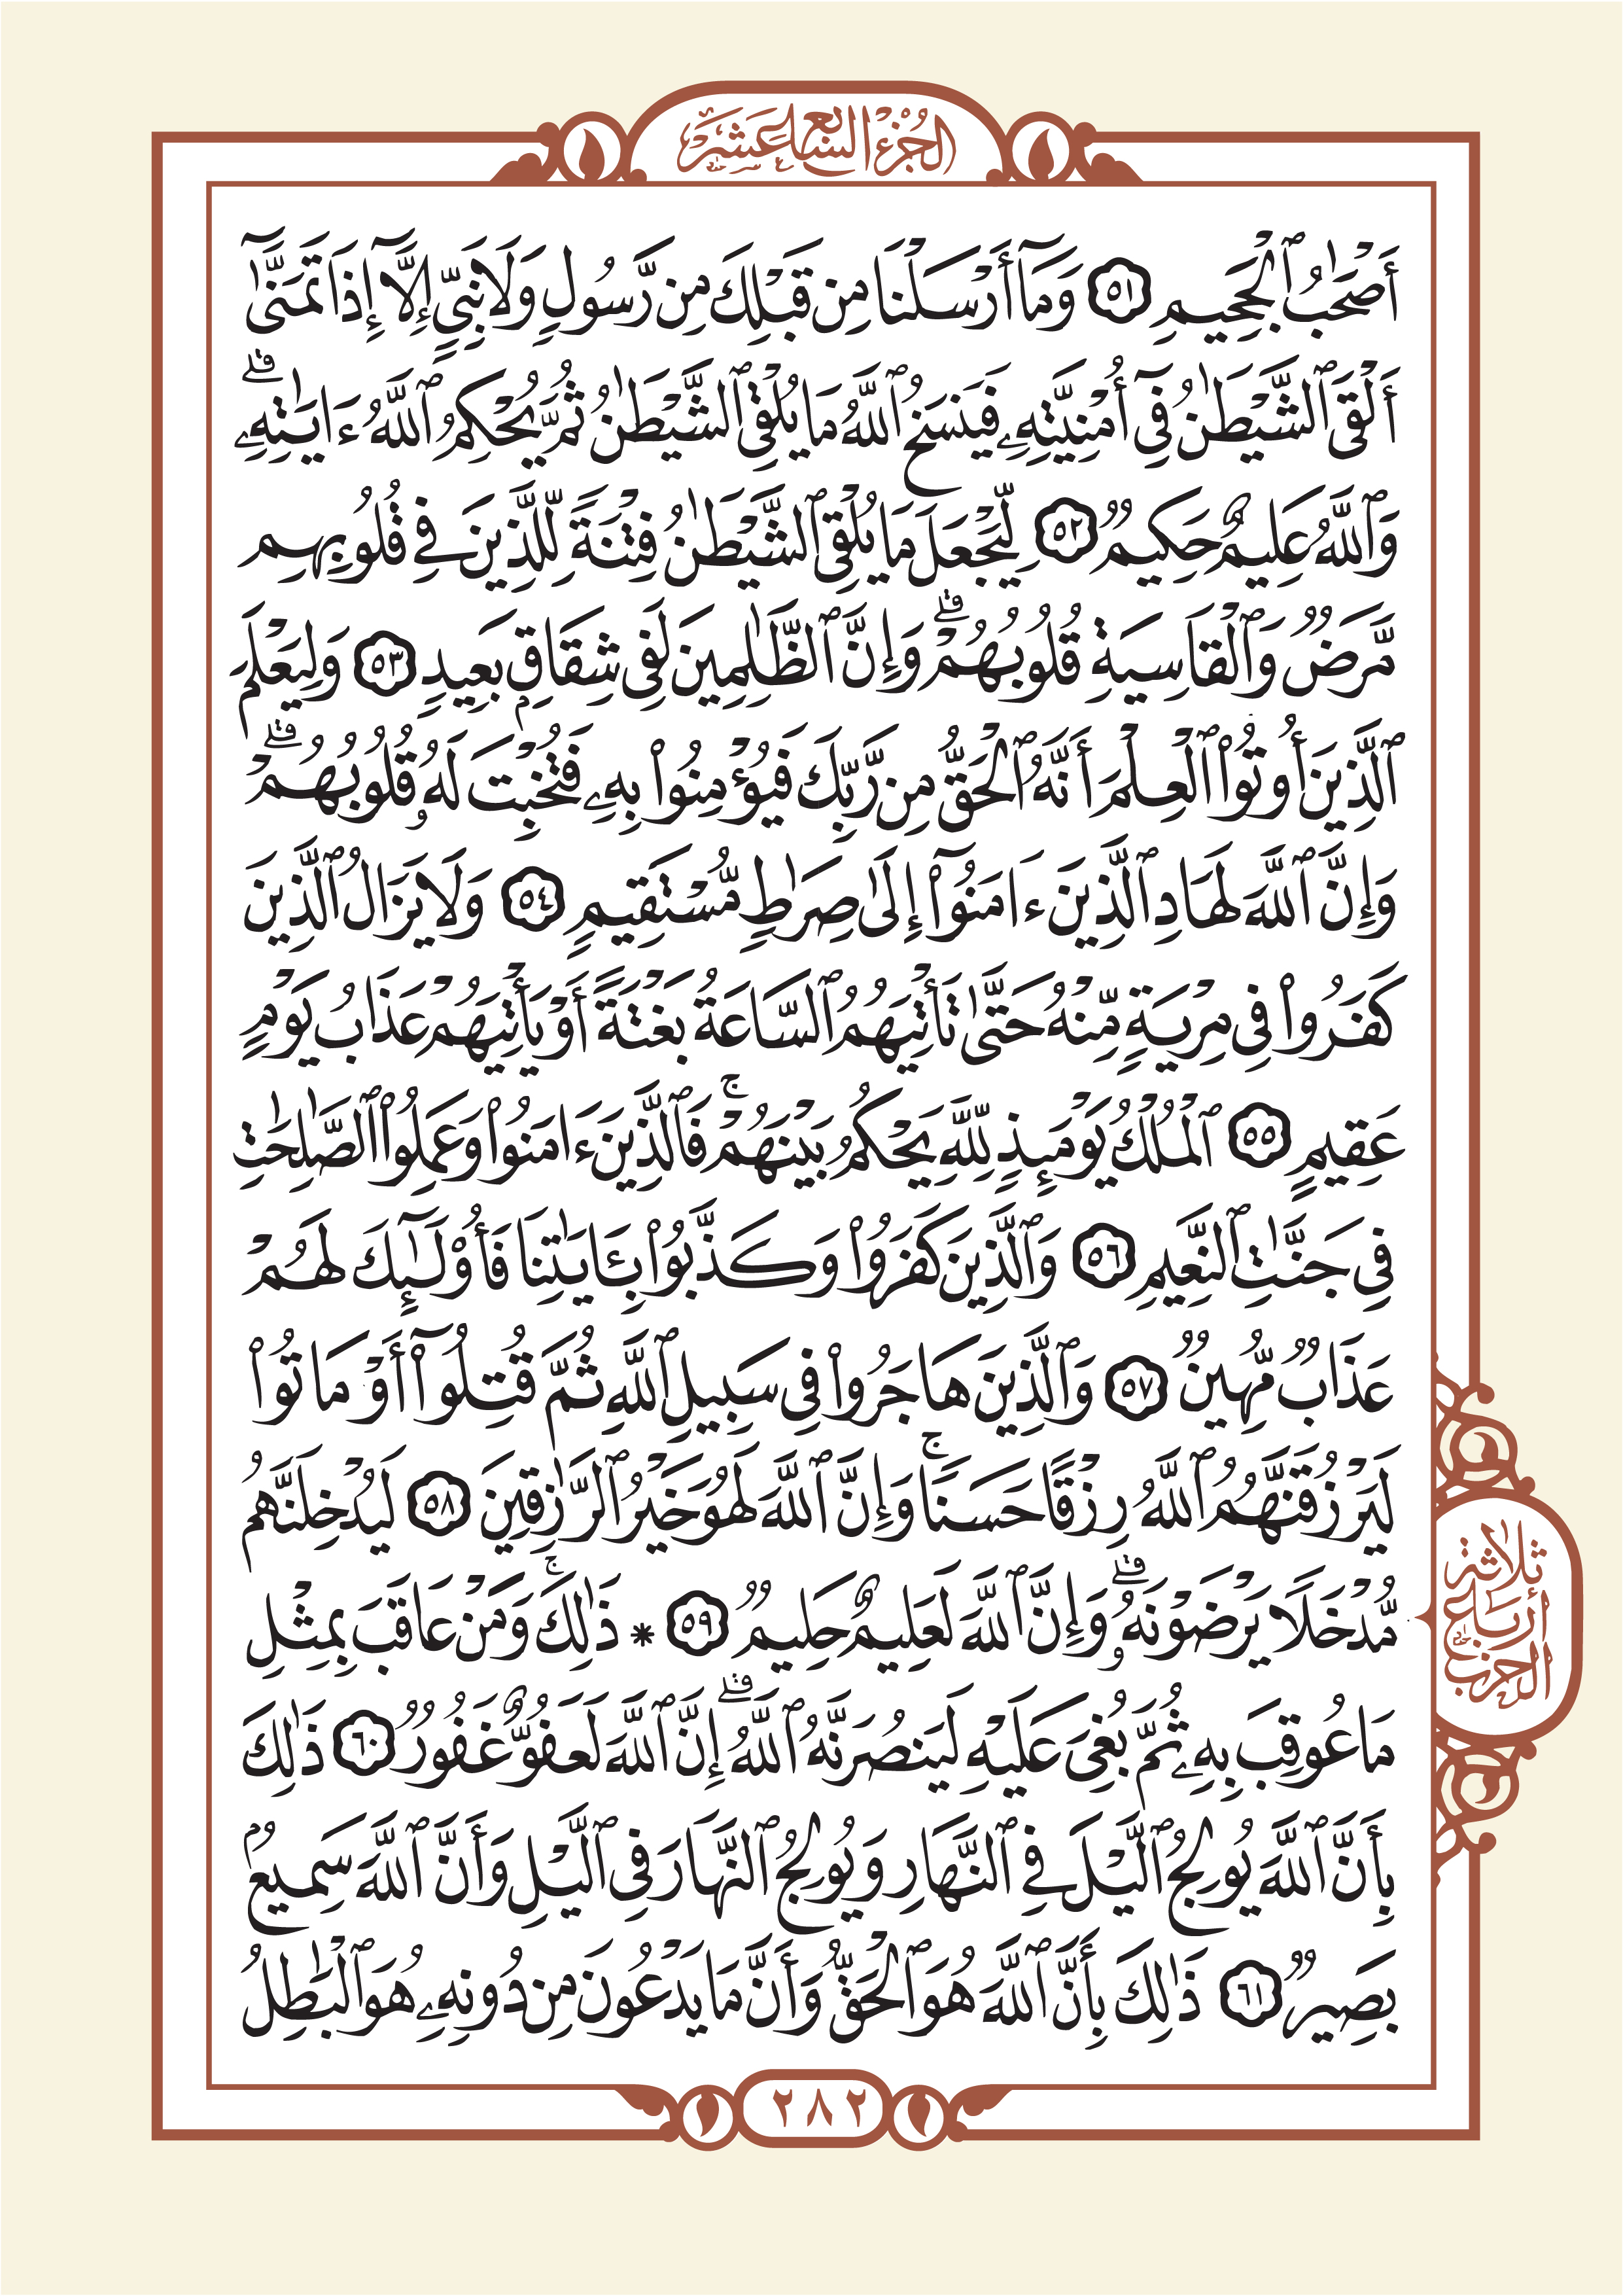 الجزء السابع عشر
أَصْحَٰبُ ٱلْجَحِيمِ ٥١ وَمَآ أَرْسَلْنَا مِن قَبْلِكَ مِن رَّسُولٍ وَلَا نَبِيٍّ إِلَّآ إِذَا تَمَنَّىٰٓ
أَلْقَى ٱلشَّيْطَٰنُ فِىٓ أُمْنِيَّتِهِۦ فَيَنسَخُ ٱللَّهُ مَا يُلْقِى ٱلشَّيْطَٰنُ ثُمَّ يُحْكِمُ ٱللَّهُ ءَايَٰتِهِۦۗ
وَٱللَّهُ عَلِيمٌ حَكِيمٌ ٥٢ لِّيَجْعَلَ مَا يُلْقِى ٱلشَّيْطَٰنُ فِتْنَةً لِّلَّذِينَ فِى قُلُوبِهِم
مَّرَضٌ وَٱلْقَاسِيَةِ قُلُوبُهُمْۗ وَإِنَّ ٱلظَّٰلِمِينَ لَفِى شِقَاقٍۭ بَعِيدٍ ٥٣ وَلِيَعْلَمَ
ٱلَّذِينَ أُوتُوا۟ ٱلْعِلْمَ أَنَّهُ ٱلْحَقُّ مِن رَّبِّكَ فَيُؤْمِنُوا۟ بِهِۦ فَتُخْبِتَ لَهُۥ قُلُوبُهُمْۗ
وَإِنَّ ٱللَّهَ لَهَادِ ٱلَّذِينَ ءَامَنُوٓا۟ إِلَىٰ صِرَٰطٍ مُّسْتَقِيمٍ ٥٤ وَلَا يَزَالُ ٱلَّذِينَ
كَفَرُوا۟ فِى مِرْيَةٍ مِّنْهُ حَتَّىٰ تَأْتِيَهُمُ ٱلسَّاعَةُ بَغْتَةً أَوْ يَأْتِيَهُمْ عَذَابُ يَوْمٍ
عَقِيمٍ ٥٥ ٱلْمُلْكُ يَوْمَئِذٍ لِّلَّهِ يَحْكُمُ بَيْنَهُمْۚ فَٱلَّذِينَ ءَامَنُوا۟ وَعَمِلُوا۟ ٱلصَّٰلِحَٰتِ
فِى جَنَّٰتِ ٱلنَّعِيمِ ٥٦ وَٱلَّذِينَ كَفَرُوا۟ وَكَذَّبُوا۟ بِـَٔايَٰتِنَا فَأُو۟لَٰٓئِكَ لَهُمْ
عَذَابٌ مُّهِينٌ ٥٧ وَٱلَّذِينَ هَاجَرُوا۟ فِى سَبِيلِ ٱللَّهِ ثُمَّ قُتِلُوٓا۟ أَوْ مَاتُوا۟
لَيَرْزُقَنَّهُمُ ٱللَّهُ رِزْقًا حَسَنًاۚ وَإِنَّ ٱللَّهَ لَهُوَ خَيْرُ ٱلرَّٰزِقِينَ ٥٨ لَيُدْخِلَنَّهُم
مُّدْخَلًا يَرْضَوْنَهُۥۗ وَإِنَّ ٱللَّهَ لَعَلِيمٌ حَلِيمٌ ٥٩ * ذَٰلِكَۚ وَمَنْ عَاقَبَ بِمِثْلِ
مَا عُوقِبَ بِهِۦ ثُمَّ بُغِىَ عَلَيْهِ لَيَنصُرَنَّهُ ٱللَّهُۗ إِنَّ ٱللَّهَ لَعَفُوٌّ غَفُورٌ ٦٠ ذَٰلِكَ
بِأَنَّ ٱللَّهَ يُولِجُ ٱلَّيْلَ فِى ٱلنَّهَارِ وَيُولِجُ ٱلنَّهَارَ فِى ٱلَّيْلِ وَأَنَّ ٱللَّهَ سَمِيعٌۢ
بَصِيرٌ ٦١ ذَٰلِكَ بِأَنَّ ٱللَّهَ هُوَ ٱلْحَقُّ وَأَنَّ مَا يَدْعُونَ مِن دُونِهِۦ هُوَ ٱلْبَٰطِلُ
ثلاثة
أرباع
الحزب
٢٨٢